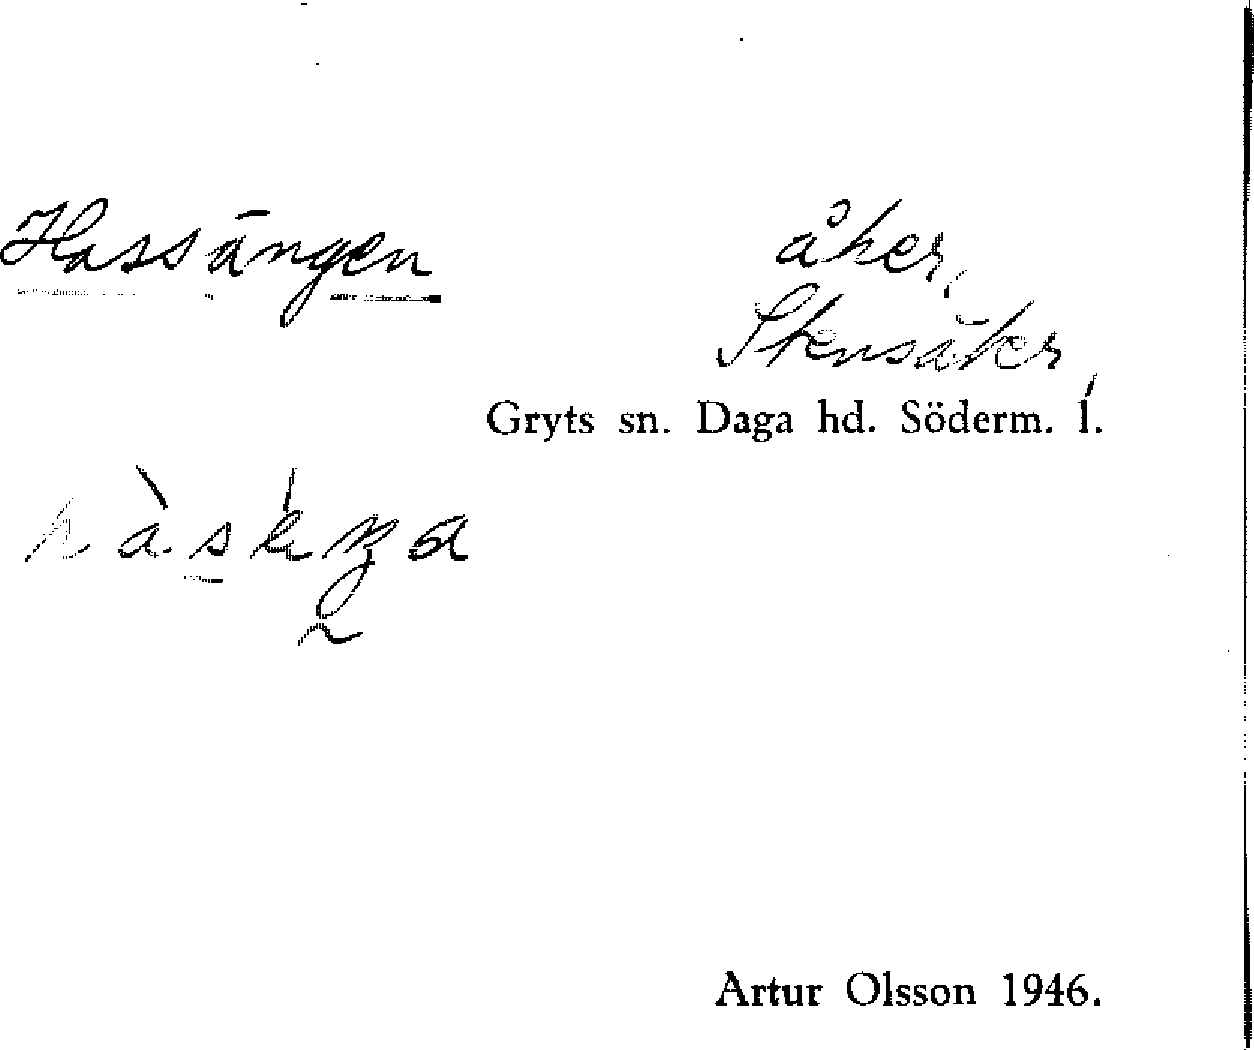 Hassängen
åker,
Stensåker,
Gryts sn. Daga hd. Söderm. l.
Artur Olsson 1946.